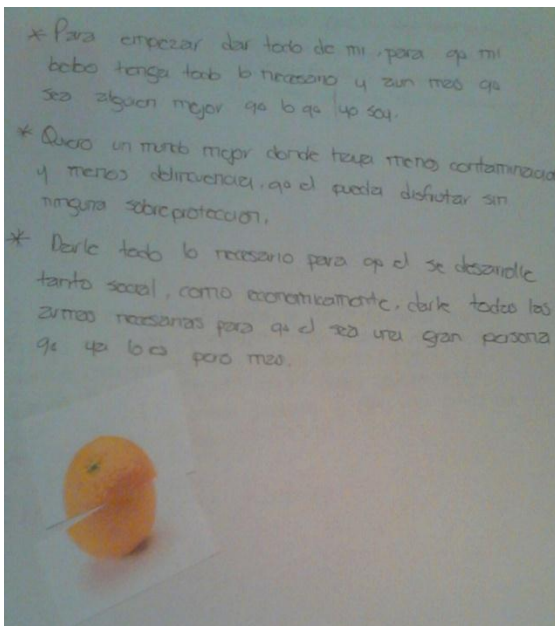 * Para empezar dar todo de mi, para qe mi
bebe tenga todo lo necesario y aun mas qe
sea alguien mejor qe lo qe yo soy.
* Quiero un mundo mejor donde haya menos contaminacion
y menos delincuencia, qe el pueda disfrutar sin
ninguna sobreproteccion.
* Darle todo lo necesario para qe el se desarrolle
tanto social, como economicamente, darle todas las
armas necesarias para qe el sea una gran persona
qe ya lo es pero mas.